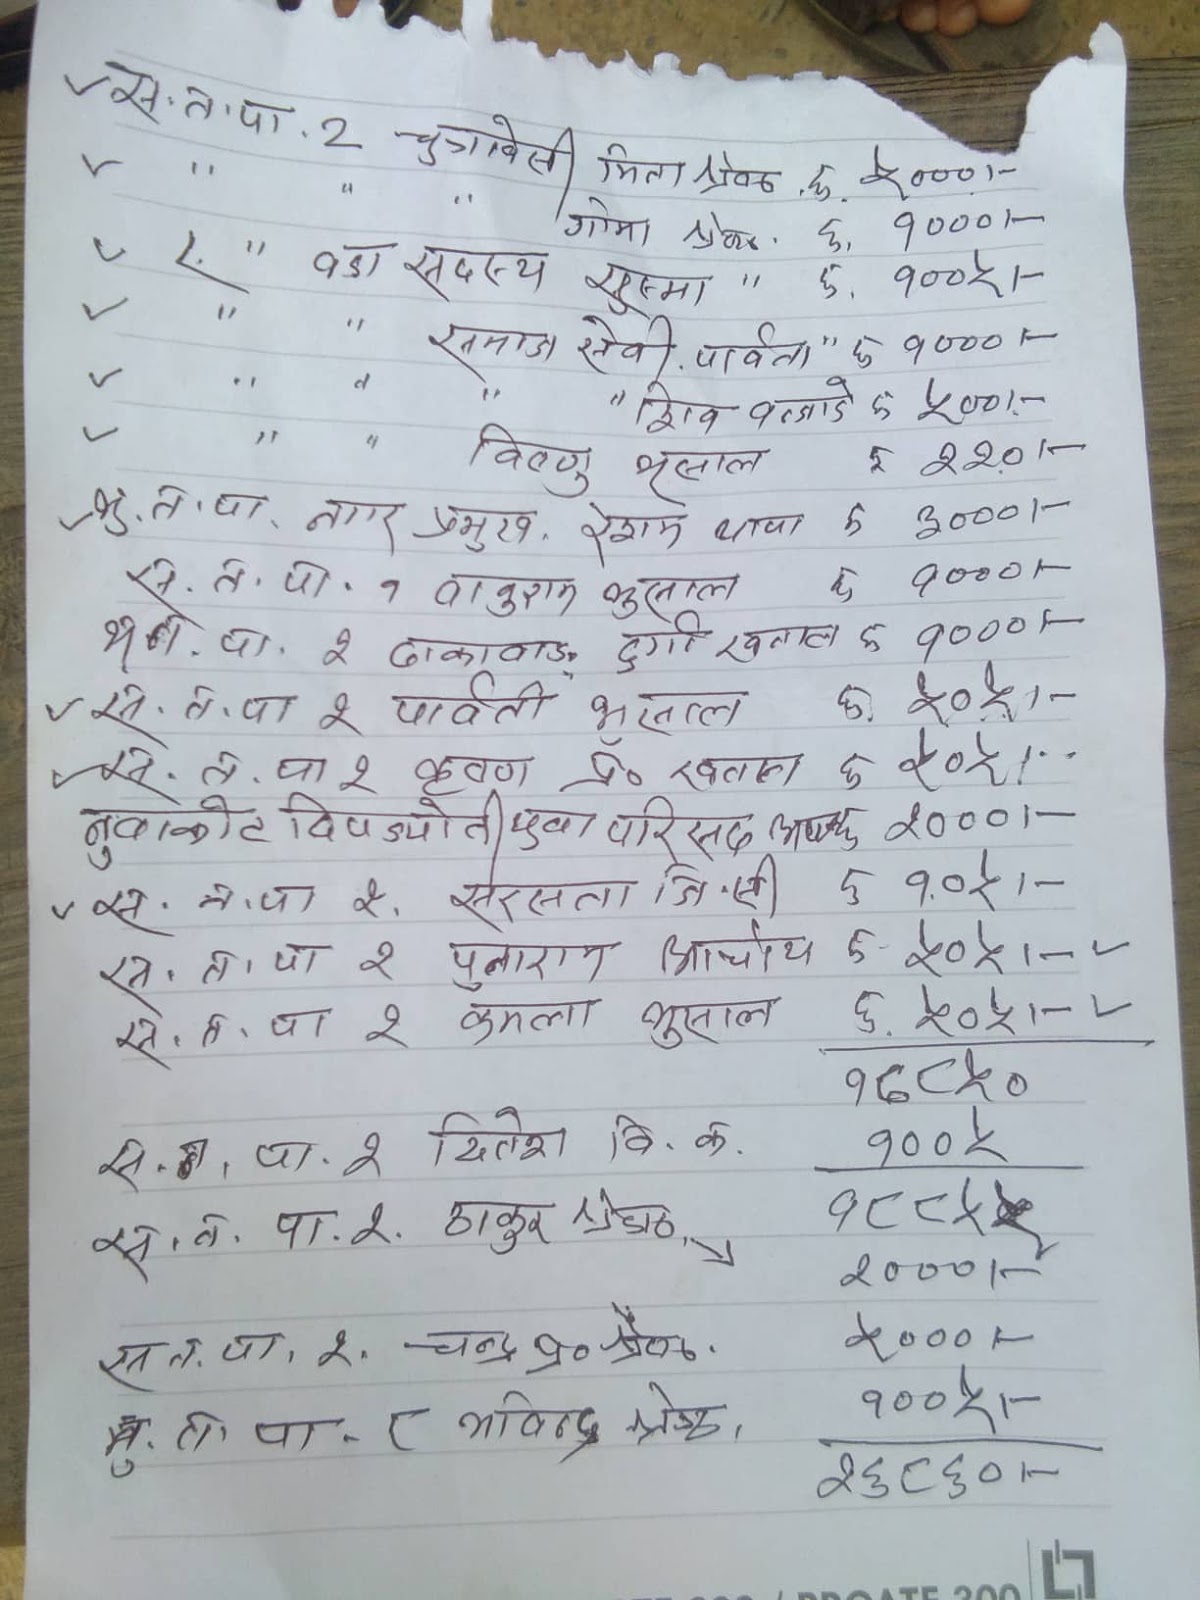 ✓ स.न.पा. 2 चुत्राबेसी मिना श्रेष्ठ रु. ५०००।-
✓ " " " गोमा श्रेष्ठ. रु. १०००।-
✓ २. " वडा सदस्य सुस्मा " रु. १००५।-
✓ " " समाज सेवी. पार्वता " रु १०००।-
✓ " " " " शिव बन्जाडे रु ५००।-
✓ " " विष्णु भुसाल रु २२०।-
✓ भु.न.पा. नगर प्रमुख. रेशम थापा रु ३०००।-
स.न.पा. १ बाबुराम भुसाल रु १०००।-
भु.न.पा. २ ढाकावाङ. दुर्गा खनाल रु १०००।-
✓ स.न.पा २ पार्वती भुसाल रु. ५०५।-
✓ स.न.पा २ कृष्ण प्र० खनाल रु ५०५।-
नुवाकोट दिपज्योती युवा परिसद रु २०००।-
✓ स.न.पा २. सरसता जि.सी रु १०५।-
स.न.पा २ पुनाराम आचार्य रु. ५०५।- ✓
स.न.पा २ कमला भुसाल रु. ५०५।- ✓
१६८५०
स.न.पा. २ दिनेश वि.क. १००५
स.न.पा. २. ठाकुर श्रेष्ठ. १८८५५
२०००।-
स.न.पा. २. चन्द्र प्र० श्रेष्ठ. ५०००।-
भु.न.पा.- ८ भविन्द्र श्रेष्ठ. १००५।-
२६८६०।-
300